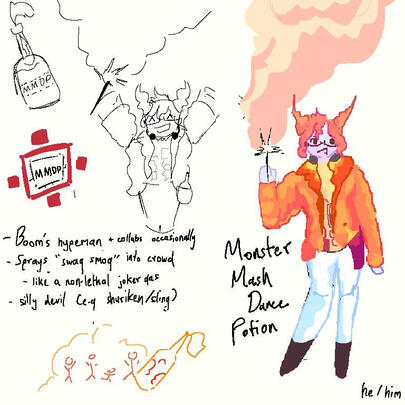 MMDP
MMDP
- Boom's hypeman + collabs occasionally
- Sprays "swag smog" into crowd
- like a non-lethal joker gas
- silly devil (e.g shuriken/sling)
Monster
Mash
Dance
Potion
he/him